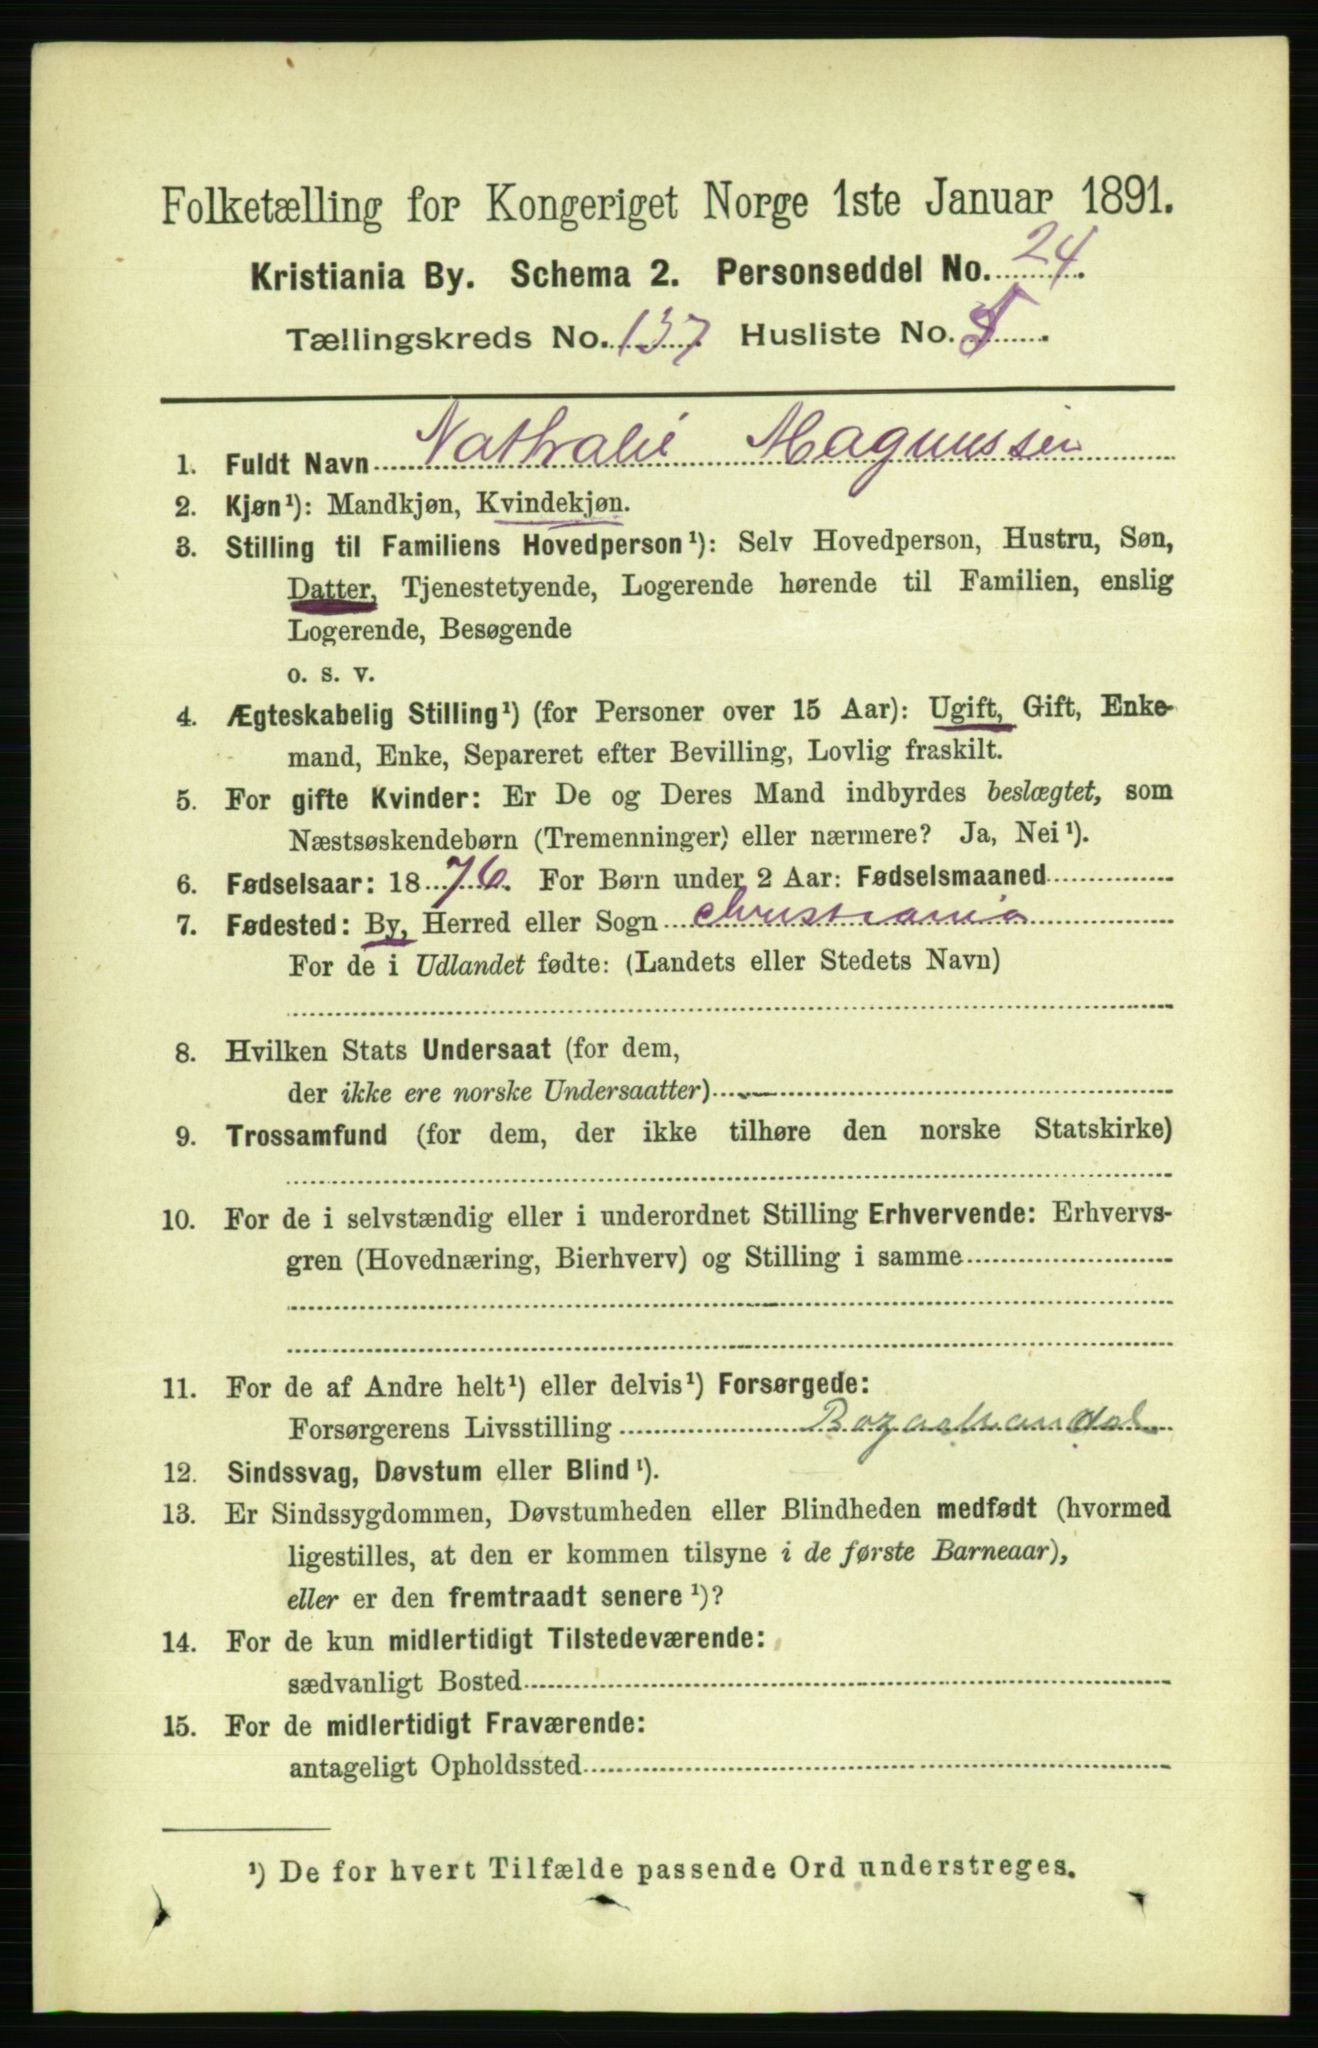 Folketælling for Kongeriget Norge 1ste Januar 1891.
Kristiania By. Schema 2. Personseddel No. 24.
Tællingskreds No. 137. Husliste No.
1. Fuldt Navn Nathalie Magnussen
2. Kjøn¹): Mandkjøn, Kvindekjøn.
3. Stilling til Familiens Hovedperson¹): Selv Hovedperson, Hustru, Søn,
Datter, Tjenestetyende, Logerende hørende til Familien, enslig
Logerende, Besøgende
o. s. v.
4. Ægteskabelig Stilling¹) (for Personer over 15 Aar): Ugift, Gift, Enke-
mand, Enke, Separeret efter Bevilling, Lovlig fraskilt.
5. For gifte Kvinder: Er De og Deres Mand indbyrdes beslægtet, som
Næstsøskendebørn (Tremenninger) eller nærmere? Ja, Nei¹).
6. Fødselsaar: 1876. For Børn under 2 Aar: Fødselsmaaned
7. Fødested: By, Herred eller Sogn Christiania
For de i Udlandet fødte: (Landets eller Stedets Navn)
8. Hvilken Stats Undersaat (for dem,
der ikke ere norske Undersaatter)
9. Trossamfund (for dem, der ikke tilhøre den norske Statskirke)
10. For de i selvstændig eller i underordnet Stilling Erhvervende: Erhvervs-
gren (Hovednæring, Bierhverv) og Stilling i samme
11. For de af Andre helt¹) eller delvis¹) Forsørgede:
Forsørgerens Livsstilling Bazarhandel
12. Sindssvag, Døvstum eller Blind¹).
13. Er Sindssygdommen, Døvstumheden eller Blindheden medfødt (hvormed
ligestilles, at den er kommen tilsyne i de første Barneaar),
eller er den fremtraadt senere¹)?
14. For de kun midlertidigt Tilstedeværende:
sædvanligt Bosted
15. For de midlertidigt Fraværende:
antageligt Opholdssted
¹) De for hvert Tilfælde passende Ord understreges.